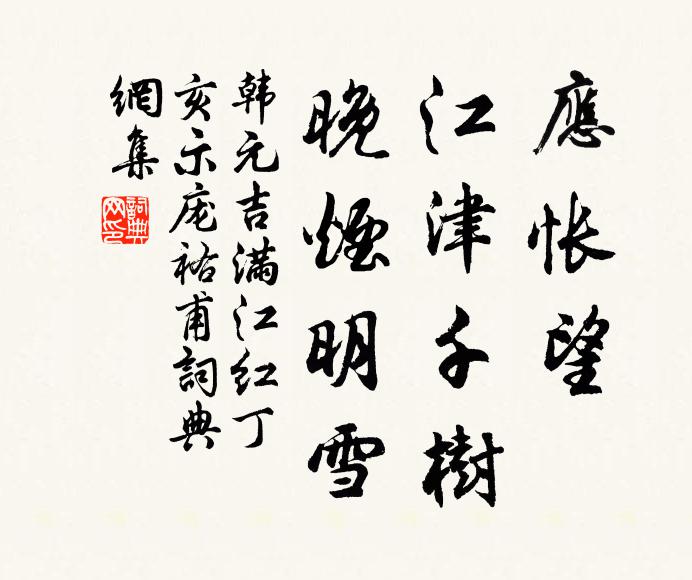 應悵望
江津千樹
晚煙明雪
韩元吉满江红丁
亥示庞祐甫詞典
網集
詞典網印